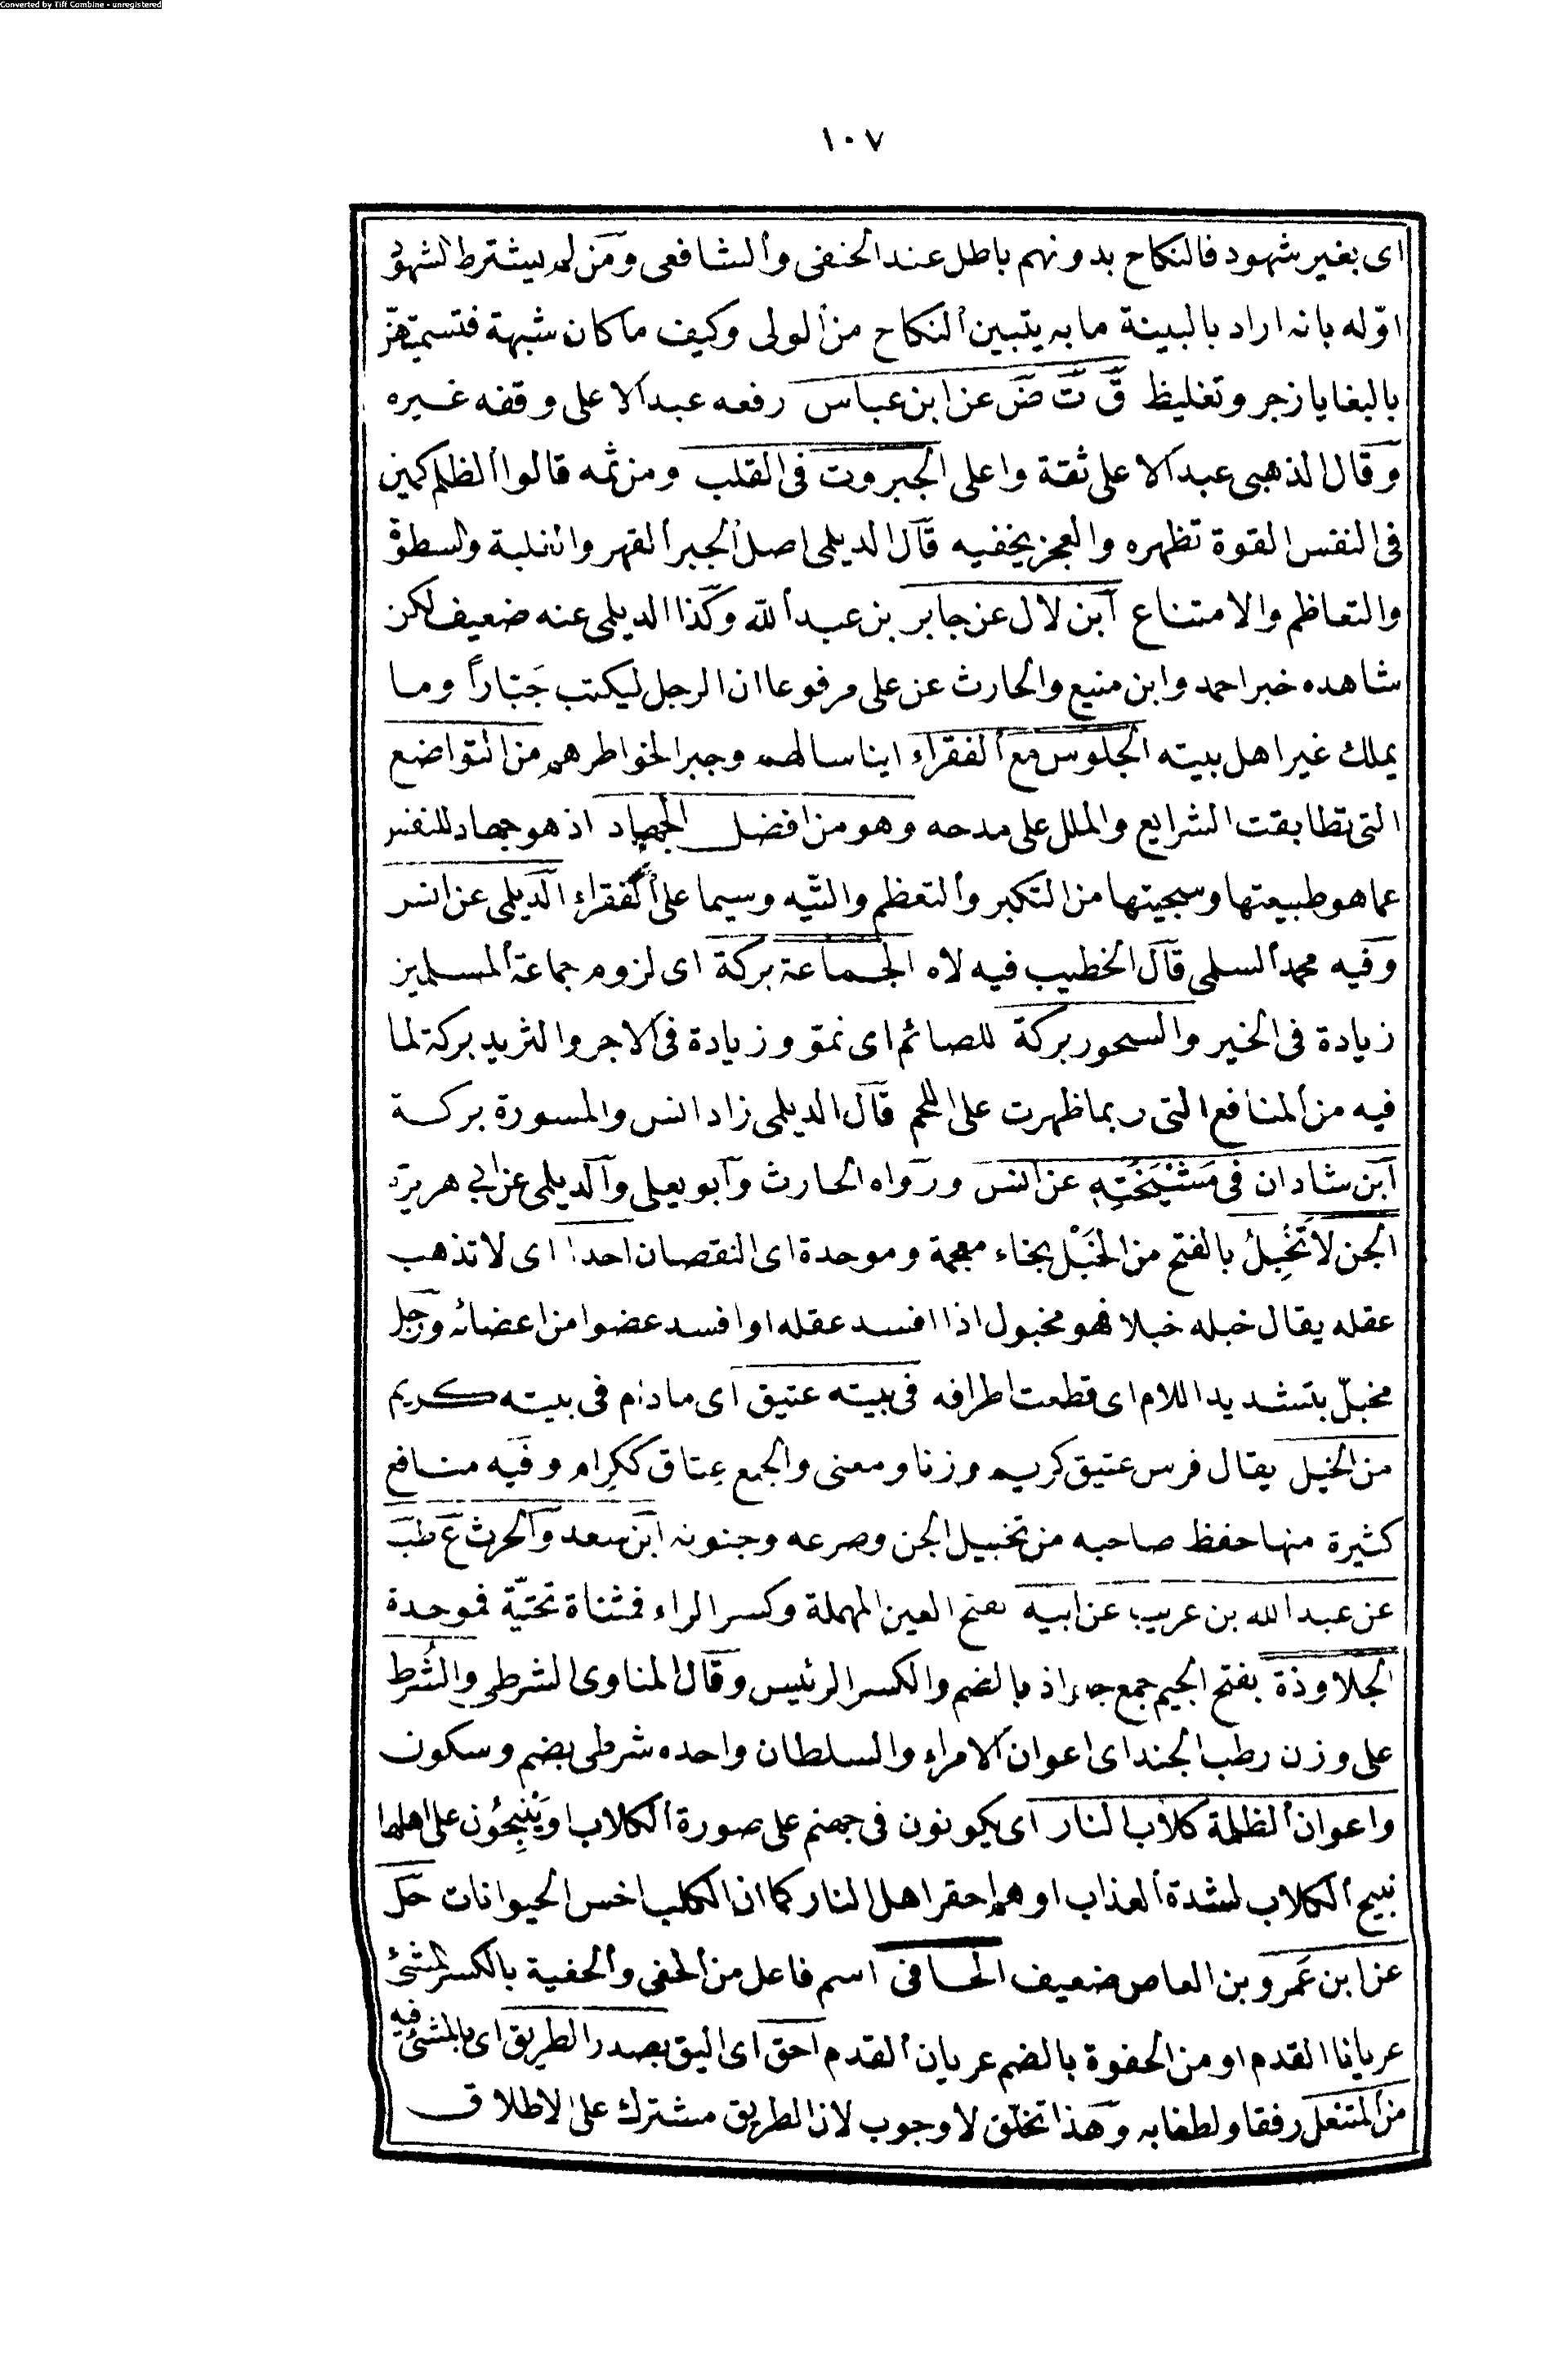 Converted by Tiff Combine - unregistered
١٠٧
اى بغير شهود فالنكاح بدونهم باطل عند الحنفى والشافعى ومن لم يشترط الشهود
اوّله بانه اراد بالبينة ما به يتبين النكاح من الولى وكيف ما كان شبهة فتسميتهنّ
بالبغايا زجر وتغليظ ق ت ض عن ابن عباس رفعه عبد الاعلى وقفه غيره
وقال الذهبى عبد الاعلى ثقة واعلى الجبروت فى القلب ومن ثمه قالوا الظلم كمين
فى النفس القوة تظهره والعجز يخفيه قال الديلمى اصل الجبر القهر والغلبة والسطوة
والتعاظم والامتناع ابن لال عن جابر بن عبد الله وكذا الديلمى عنه ضعيف لكن
شاهده خبر احمد وابن منيع والحارث عن على مرفوعا ان الرجل ليكتب جَبّاراً وما
يملك غير اهل بيته الجلوس مع الفقراء ايناسا لهم وجبرا لخواطرهم من التواضع
التى تطابقت الشرايع والملل على مدحه وهو من افضل الجهاد اذ هو جهاد للنفس
عما هو طبيعتها وسجيتها من التكبر والتعظم والتّيه وسيما على الفقراء الديلمى عن انس
وفيه محمد السلمى قال الخطيب فيه لاه الجماعة بركة اى لزوم جماعة المسلمين
زيادة فى الخير والسحور بركة للصائم اى نموّ وزيادة فى الاجر والثريد بركة لما
فيه من المنافع التى ربما ظهرت على اللحم قال الديلمى زاد انس والمسورة بركة
ابن شادان فى مَشْيَخَتِهِ عن انس ورواه الحارث وابو يعلى والديلمى عن ابى هريرة
الجن لا تَخْبِلُ بالفتح من الخَبْل بخاء معجمة وموحدة اى النقصان احدا اى لا تذهب
عقله يقال خبله خبلا فهو مخبول اذا افسد عقله او افسد عضوا من اعضائه ورجل
مخبلّ بتشديد اللام اى قطعت اطرافه فى بيته عتيق اى ما دام فى بيته كريم
من الخيل يقال فرس عتيق كريم وزنا ومعنى والجمع عِتاق ككِرام وفيه منافع
كثيرة منها حفظ صاحبه من تخبيل الجن وصرعه وجنونه ابن سعد والحرث ع طب
عن عبد الله بن عريب عن ابيه بفتح العين المهملة وكسر الراء فمثناة تحتيّة فموحدة
الجلاوذة بفتح الجيم جمع جلواذ بالضم والكسر الرئيس وقال المناوى الشرطى والشُرط
على وزن رطب الجند اى اعوان الامراء والسلطان واحده شرطى بضم وسكون
واعوان الظلمة كلاب النار اى يكونون فى جهنم على صورة الكلاب او يَنْبِحُون على اهلها
نبيح الكلاب لشدة العذاب او هم احقر اهل النار كما ان الكلب اخس الحيوانات حل
عن ابن عَمرو بن العاص ضعيف الحافى اسم فاعل من الحفى والحفية بالكسر المشئ
عريانا القدم او من الحفوة بالضم عريان القدم احق اى اليق بصدر الطريق اى بالمشئ فيه
من المتنعل رفقا ولطفا به وهذا تخلّق لا وجوب لان الطريق مشترك على الاطلاق